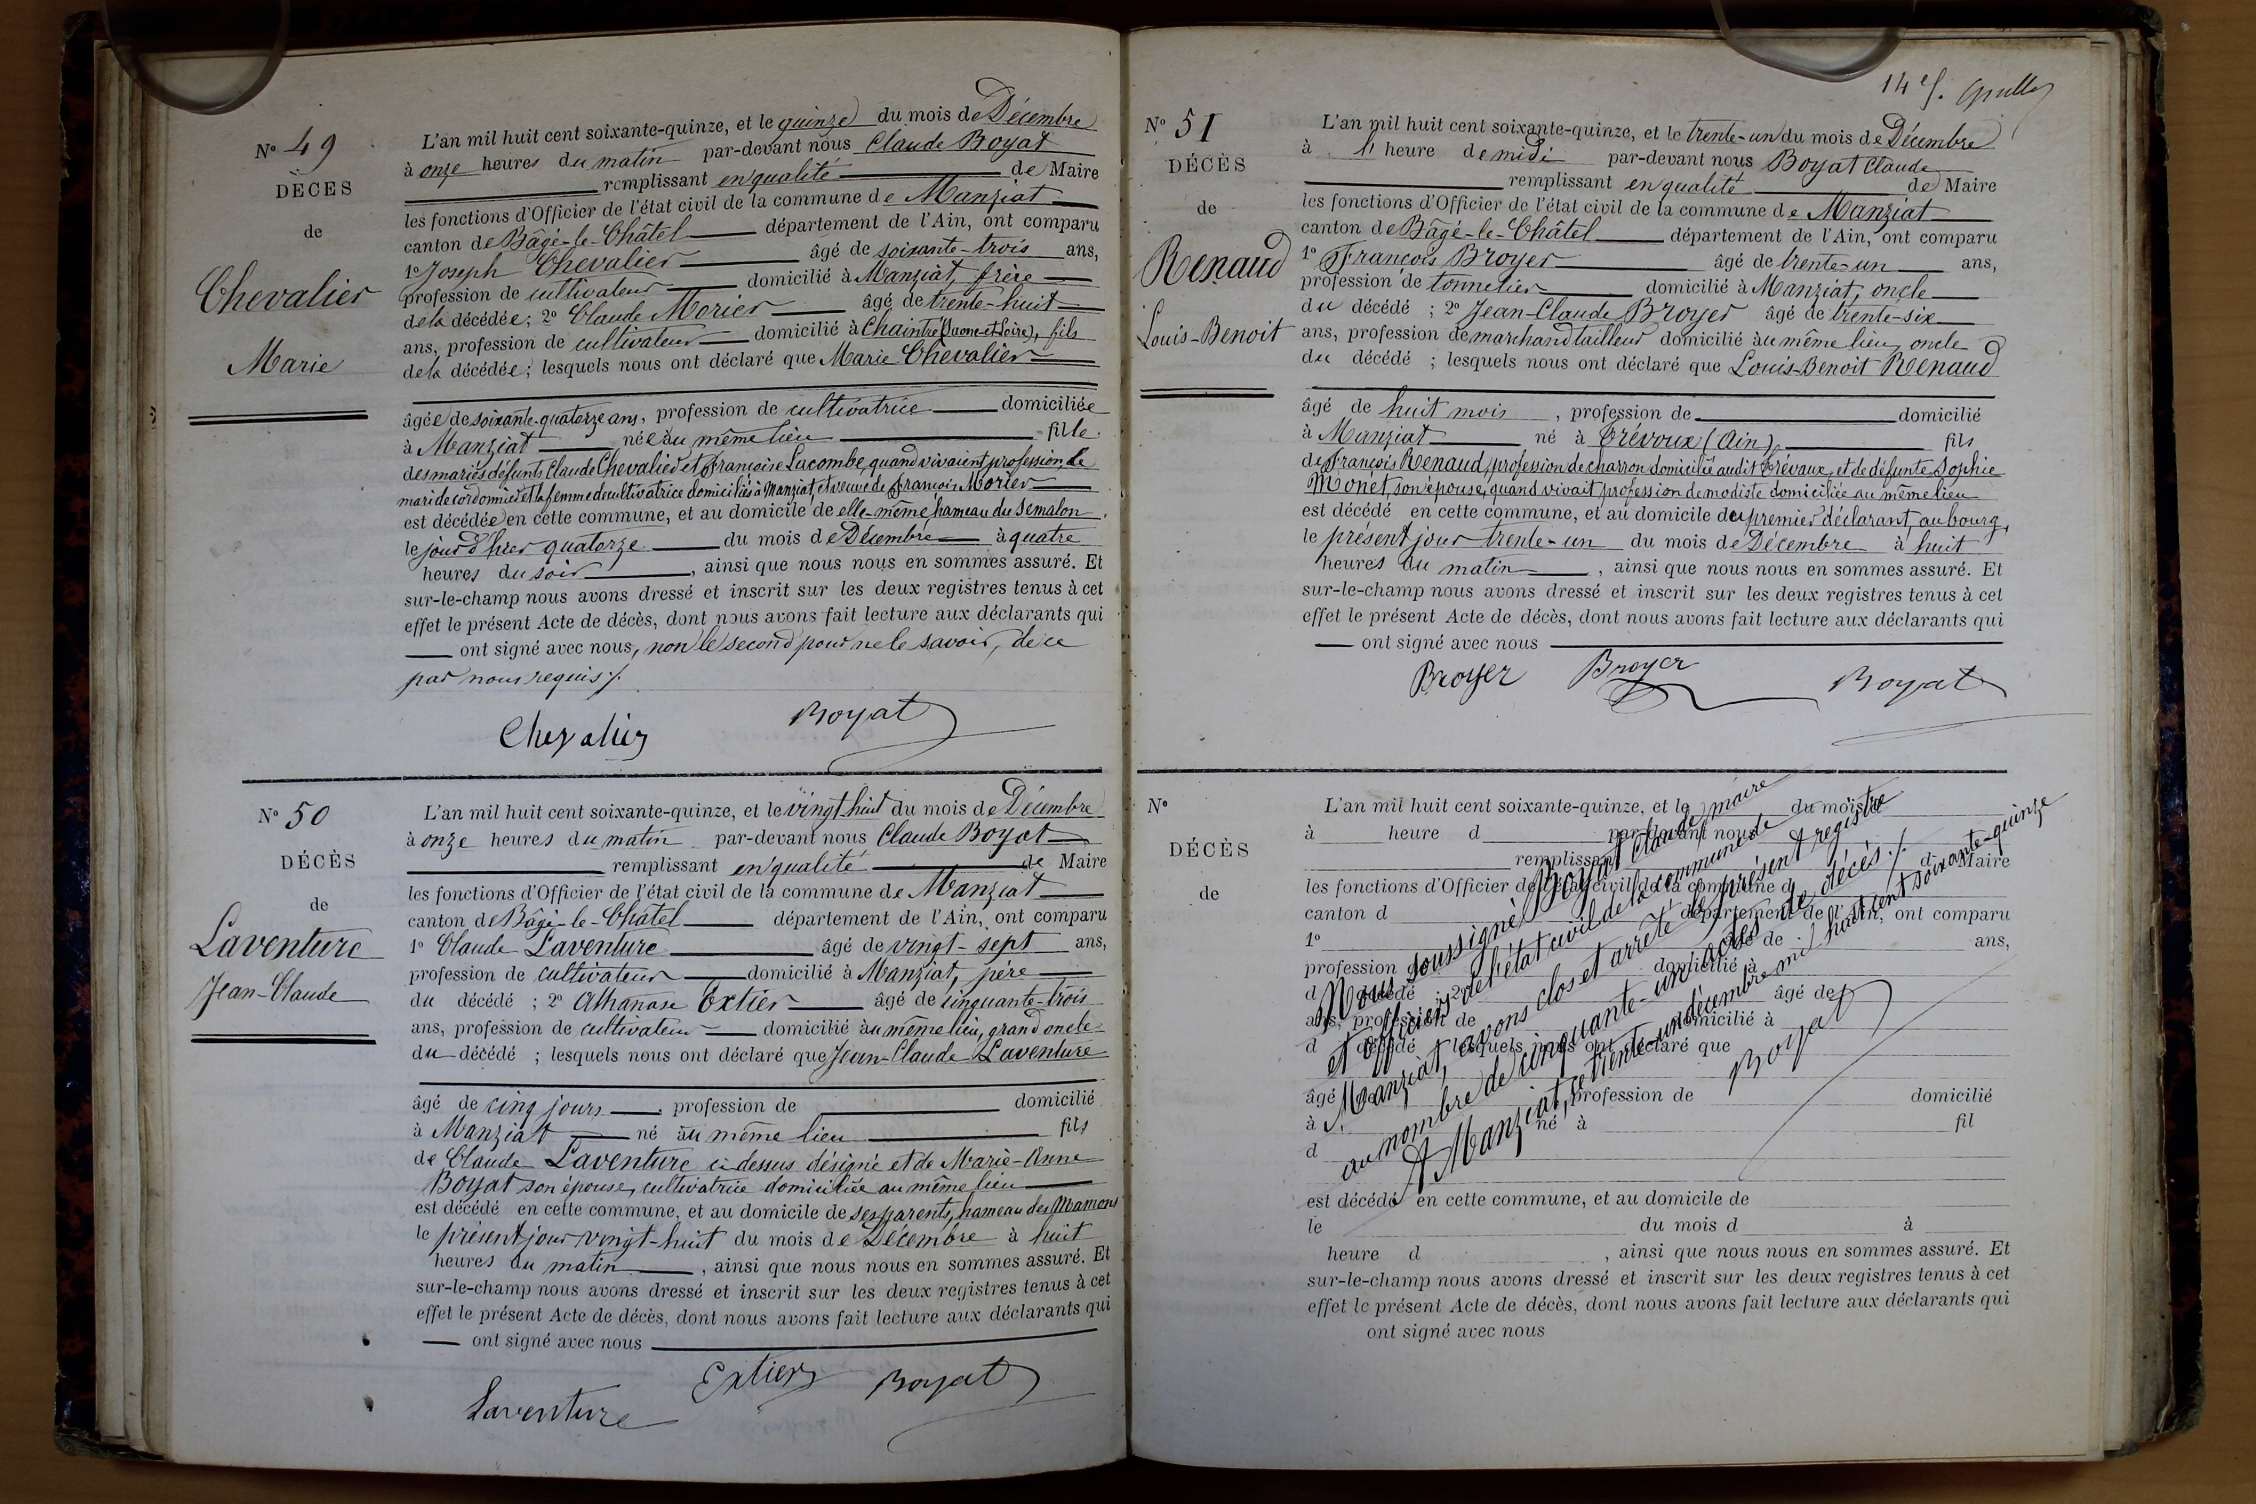 N° 49
DÉCÈS
de
Chevalier
Marie
L'an mil huit cent soixante-quinze, et le quinze du mois de Décembre
à onze heures du matin par-devant nous Claude Boyat
remplissant en qualité de Maire
les fonctions d'Officier de l'état civil de la commune de Manziat
canton de Bâgé-le-Châtel département de l'Ain, ont comparu
1° Joseph Chevalier âgé de soixante-trois ans,
profession de cultivateur domicilié à Manziat, frère
de la décédée ; 2° Claude Morier âgé de trente-huit
ans, profession de cultivateur domicilié à Chaintré (Saone-et-Loire), fils
de la décédée ; lesquels nous ont déclaré que Marie Chevalier
âgée de soixante-quatorze ans, profession de cultivatrice domiciliée
à Manziat née au même lieu fille
des mariés défunts Claude Chevalier et Françoise Lacombe, quand vivaient profession, le
mari de cordonnier et la femme de cultivatrice domiciliés à Manziat, et veuve de François Morier
est décédée en cette commune, et au domicile de elle-même, hameau du Semalon,
le jour d'hier quatorze du mois de Décembre à quatre
heures du soir, ainsi que nous nous en sommes assuré. Et
sur-le-champ nous avons dressé et inscrit sur les deux registres tenus à cet
effet le présent Acte de décès, dont nous avons fait lecture aux déclarants qui
ont signé avec nous, non le second pour ne le savoir, de ce
par nous requis ./.
Chevalier Boyat
N° 50
DÉCÈS
de
Laventure
Jean-Claude
L'an mil huit cent soixante-quinze, et le vingt-huit du mois de Décembre
à onze heures du matin par-devant nous Claude Boyat
remplissant en qualité de Maire
les fonctions d'Officier de l'état civil de la commune de Manziat
canton de Bâgé-le-Châtel département de l'Ain, ont comparu
1° Claude Laventure âgé de vingt-sept ans,
profession de cultivateur domicilié à Manziat, père
du décédé ; 2° Athanase Extier âgé de cinquante-trois
ans, profession de cultivateur domicilié au même lieu, grand oncle
du décédé ; lesquels nous ont déclaré que Jean-Claude Laventure
âgé de cinq jours, profession de domicilié
à Manziat né au même lieu fils
de Claude Laventure ci-dessus désigné et de Marie-Anne
Boyat son épouse, cultivatrice domiciliée au même lieu
est décédé en cette commune, et au domicile de ses parents, hameau des Mamons
le présent jour vingt-huit du mois de Décembre à huit
heures du matin, ainsi que nous nous en sommes assuré. Et
sur-le-champ nous avons dressé et inscrit sur les deux registres tenus à cet
effet le présent Acte de décès, dont nous avons fait lecture aux déclarants qui
ont signé avec nous
Laventure Extier Boyat
14e f.
N° 51
DÉCÈS
de
Renaud
Louis-Benoit
L'an mil huit cent soixante-quinze, et le trente-un du mois de Décembre
à heure de midi par-devant nous Boyat Claude
remplissant en qualité de Maire
les fonctions d'Officier de l'état civil de la commune de Manziat
canton de Bâgé-le-Châtel département de l'Ain, ont comparu
1° François Broyer âgé de trente-un ans,
profession de tonnelier domicilié à Manziat, oncle
du décédé ; 2° Jean-Claude Broyer âgé de trente-six
ans, profession de marchand tailleur domicilié au même lieu, oncle
du décédé ; lesquels nous ont déclaré que Louis-Benoit Renaud
âgé de huit mois, profession de domicilié
à Manziat né à Trévoux (Ain), fils
de François Renaud, profession de charron domicilié audit Trévoux, et de défunte Sophie
Monet, son épouse, quand vivait profession de modiste domiciliée au même lieu
est décédé en cette commune, et au domicile du premier déclarant, au bourg,
le présent jour trente-un du mois de Décembre à huit
heures du matin, ainsi que nous nous en sommes assuré. Et
sur-le-champ nous avons dressé et inscrit sur les deux registres tenus à cet
effet le présent Acte de décès, dont nous avons fait lecture aux déclarants qui
ont signé avec nous
Broyer Broyer Boyat
N°
DÉCÈS
de
L'an mil huit cent soixante-quinze, et le du mois
à heure d par-devant nous
remplissant d Maire
les fonctions d'Officier de l'état civil de la commune d
canton d département de l'Ain, ont comparu
1° âgé de ans,
profession de domicilié à
d décédé ; 2° âgé de
ans, profession de domicilié à
d décédé ; lesquels nous ont déclaré que
âgé de profession de domicilié
à né à fil
d
est décédé en cette commune, et au domicile de
le du mois d à
heure d , ainsi que nous nous en sommes assuré. Et
sur-le-champ nous avons dressé et inscrit sur les deux registres tenus à cet
effet le présent Acte de décès, dont nous avons fait lecture aux déclarants qui
ont signé avec nous
Nous soussigné Boyat Claude, maire
et officier de l'état civil de la commune de
Manziat, avons clos et arrêté le présent registre
au nombre de cinquante-un actes de décès ./.
A Manziat, ce trente-un décembre mil huit cent soixante-quinze
Boyat